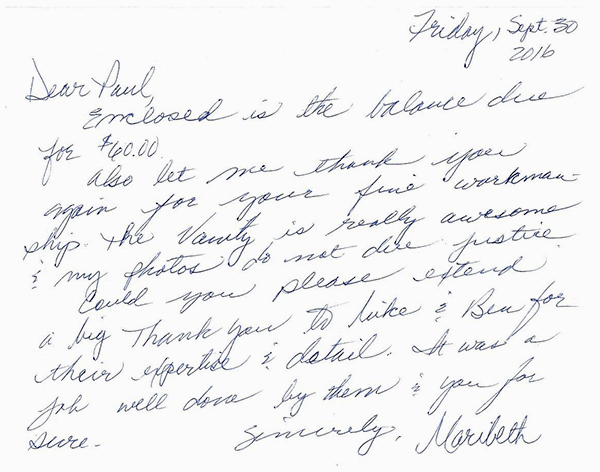 Friday, Sept. 30
2016
Dear Paul,
Enclosed is the balance due
for $60.00.
Also let me thank you
again for your fine workman-
ship. The Vanity is really awesome
& my photos do not due justice.
Could you please extend
a big Thank you to Luke & Ben for
their expertise & detail. It was a
job well done by them & you for
sure.
Sincerely, Maribeth